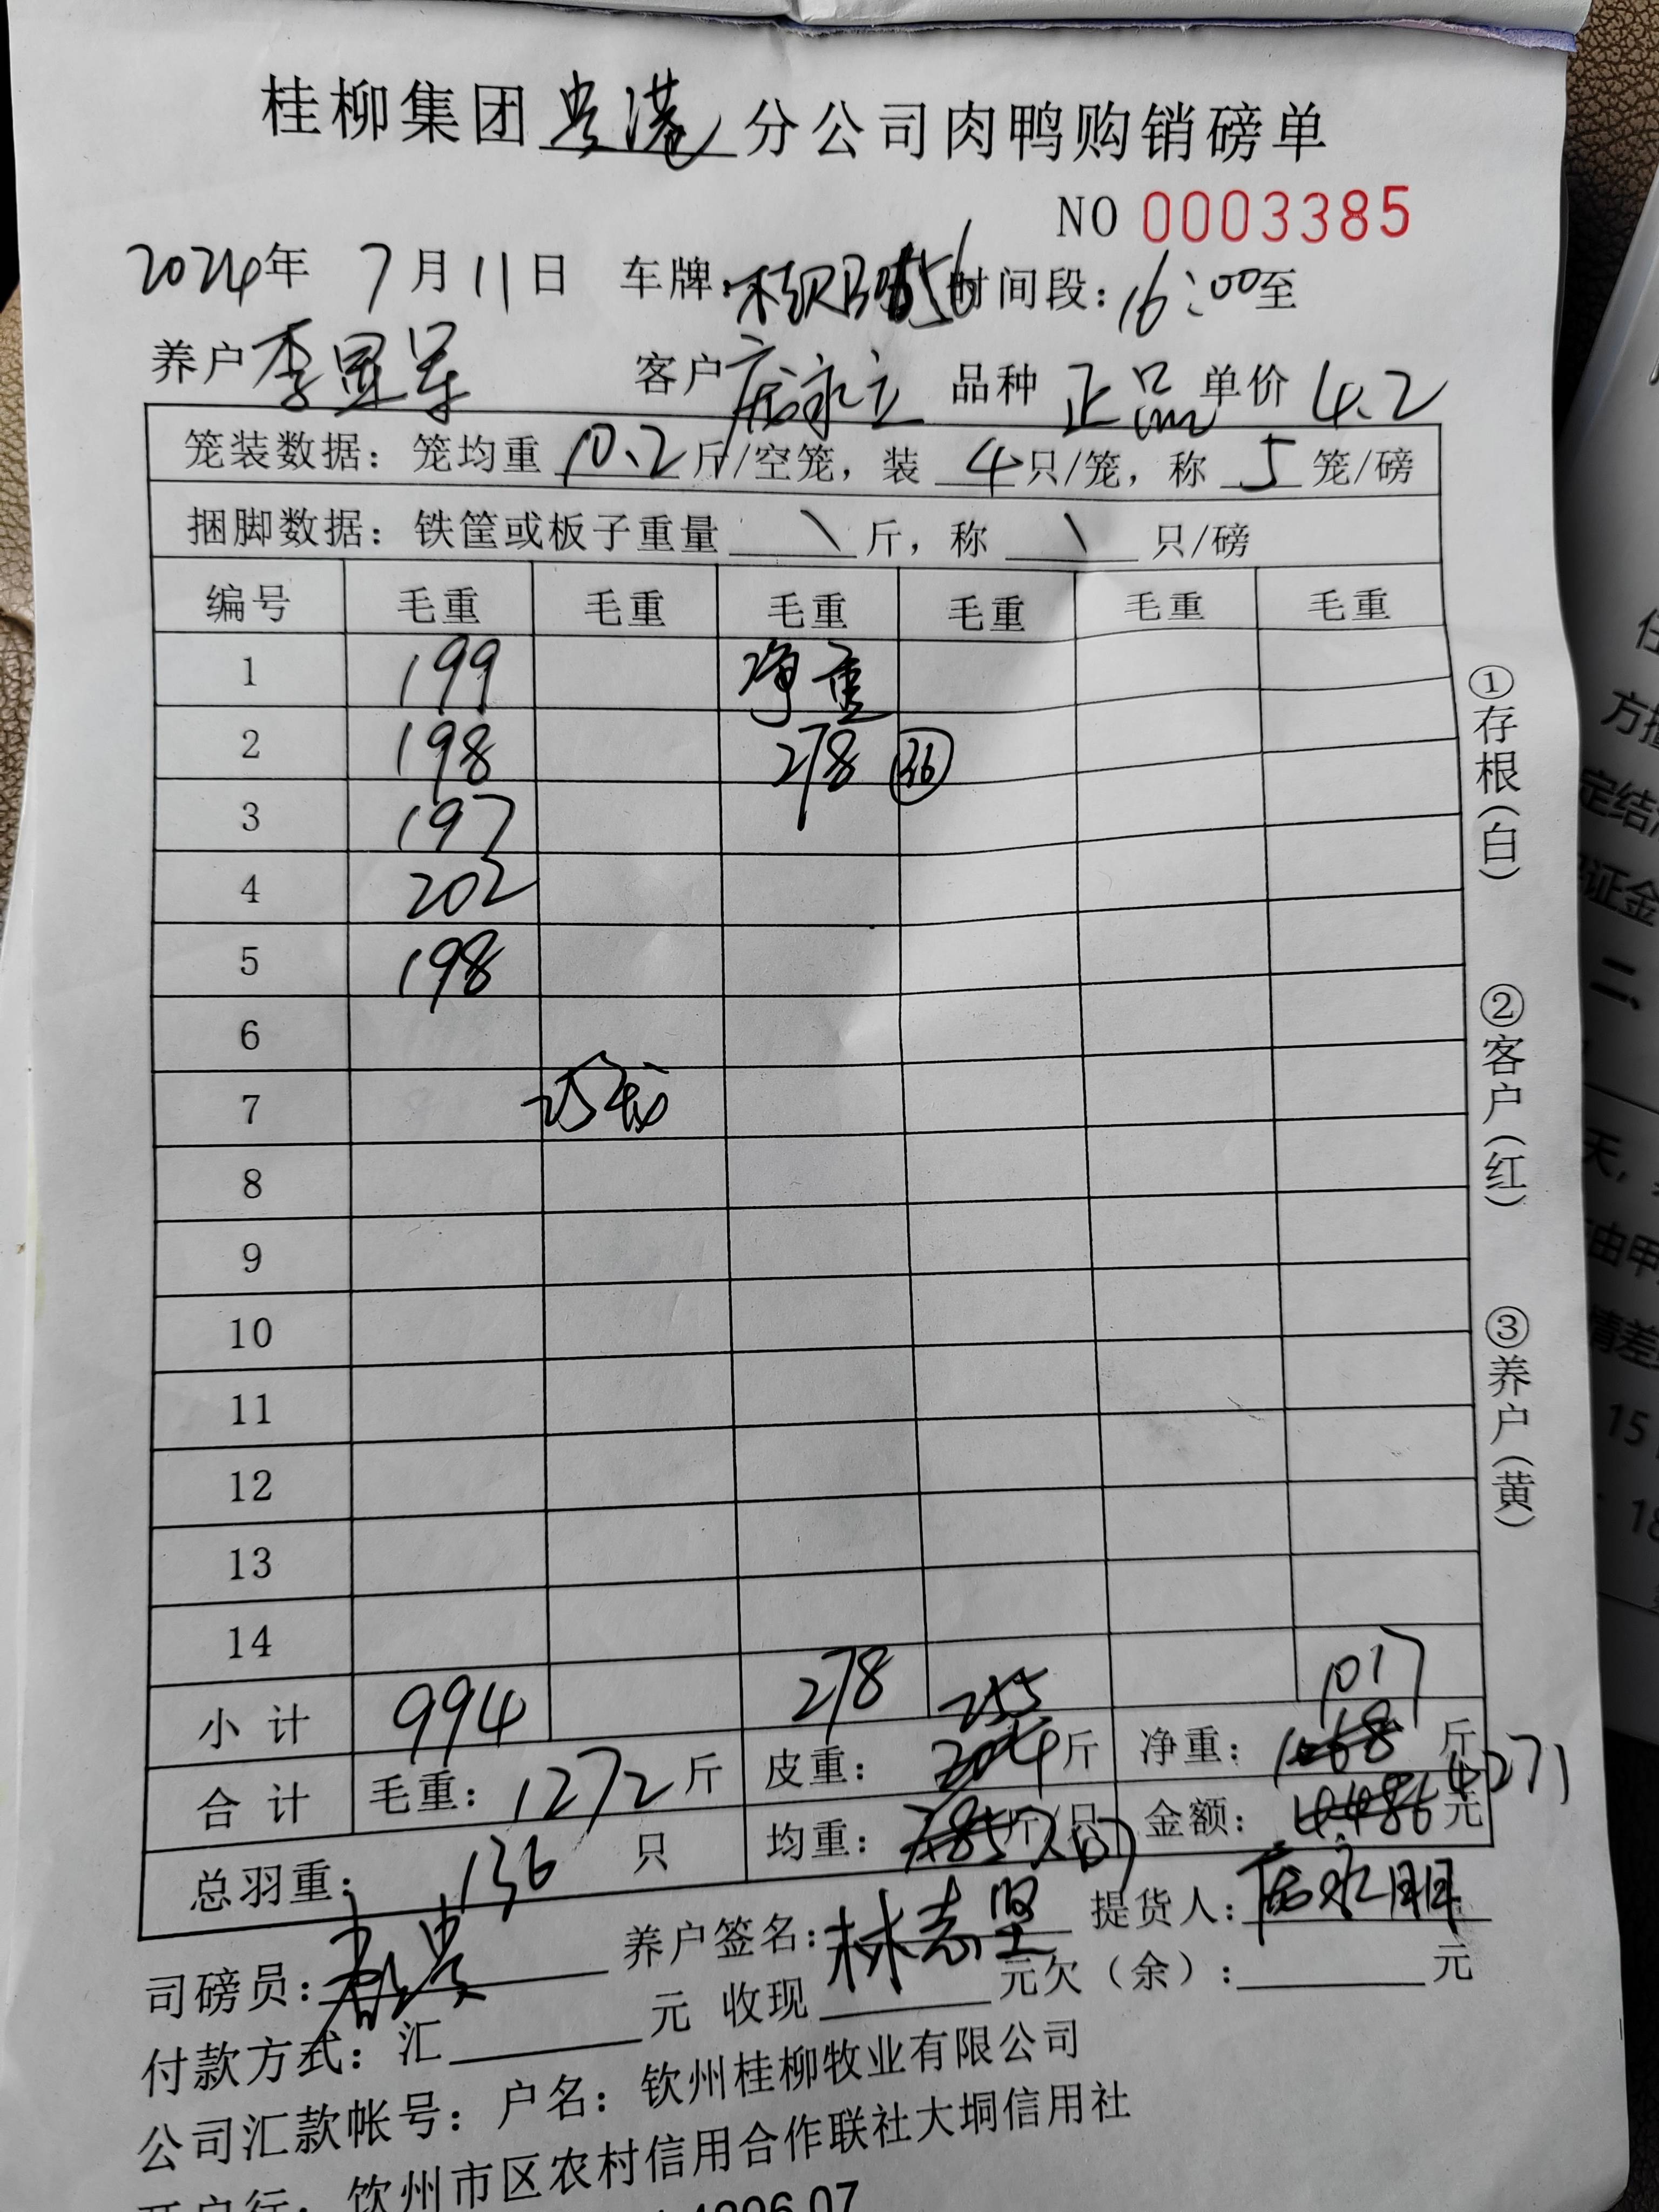 桂柳集团贵港分公司肉鸭购销磅单
NO 0003385
2024年 7月11日 车牌: 时间段:16:00至
养户 李显军 客户 庞永立 品种 正品 单价 4.2
笼装数据: 笼均重 10.2 斤/空笼, 装 4 只/笼, 称 5 笼/磅
捆脚数据: 铁筐或板子重量 \ 斤, 称 \ 只/磅
编号 毛重 毛重 毛重 毛重 毛重 毛重
1 199 净重
2 198 278 36
3 197
4 202
5 198
6
7 25
8
9
10
11
12
13
14
1017
小计 994 278 255
合计 毛重: 1272 斤 皮重: 204 斤 净重: 1068 斤
4271
总羽重: 136 只 均重: 斤/只 金额: 4486 元
司磅员: 养户签名: 林志坚 提货人: 庞永明
付款方式: 汇 元 收现 元欠(余): 元
公司汇款帐号: 户名: 钦州桂柳牧业有限公司
开户行: 钦州市区农村信用合作联社大垌信用社
①存根(白)
②客户(红)
③养户(黄)
方
定结
证金
二、
天,
由甲
情差
15
18